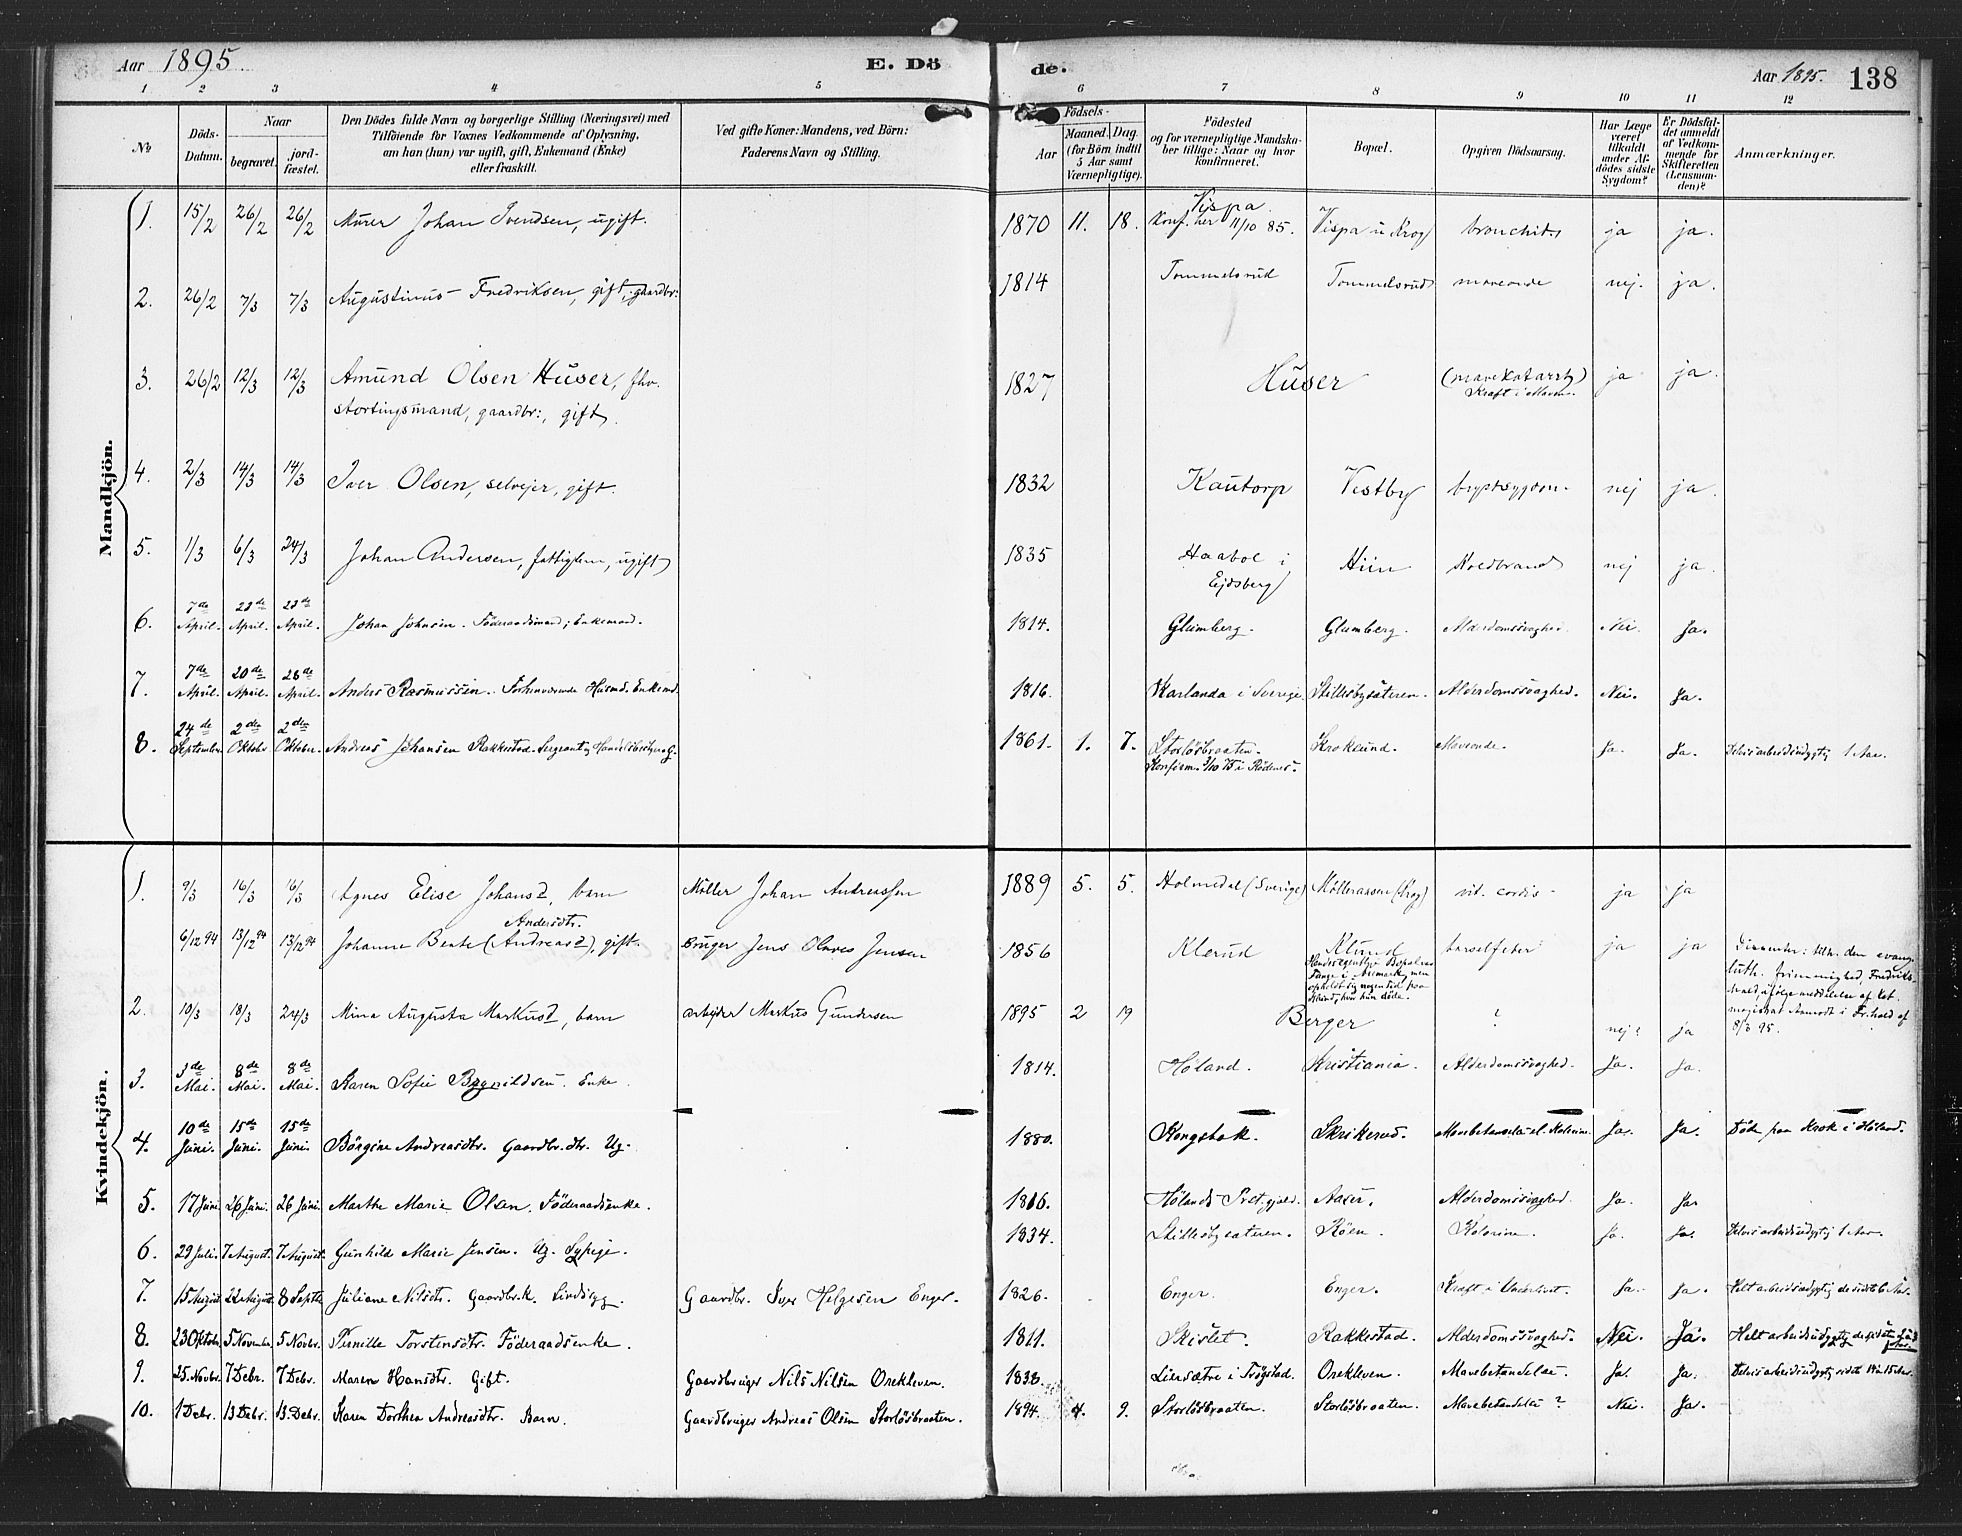 Aar 1895. E. Dö de. Aar 1895. 138
1 2 3 4 5 6 7 8 9 10 11 12
No
Döds-Datum.
Naar
begravet.
jord-fæstet.
Den Dödes fulde Navn og borgerlige Stilling (Næringsvei) med
Tilföiende for Voxnes Vedkommende af Oplysning,
om han (hun) var ugift, gift, Enkemand (Enke)
eller fraskilt.
Ved gifte Koner: Mandens, ved Börn:
Faderens Navn og Stilling.
Födsels-
Aar
Maaned. Dag.
(for Börn indtil
5 Aar samt
Værnepligtige).
Födested
og for værnepligtige Mandska-
ber tillige: Naar og hvor
konfirmeret.
Bopæl.
Opgiven Dödsaarsag.
Har Læge
været
tilkaldt
under Af-
dödes sidste
Sygdom?
Er Dödsfal-
det anmeldt
af Vedkom-
mende for
Skifteretten
(Lensman-
den)?
Anmærkninger.
Mandkjön.
1. 15/2 26/2 26/2 Murer Johan Svendsen, ugift. 1870 11. 18. Vispa. Konf. her 11/10 85. Vispa u. Krog bronchitis ja ja.
2. 26/2 7/3 7/3 Augustinus Fredriksen, gift, gaardbr: 1814 Tommelsrud Tommelsrud maveonde nej. ja.
3. 26/2 12/3 12/3 Amund Olsen Huser, fhv. 1827 Huser (mavekatarrh) ja ja.
stortingsmand, gaardbr:, gift. Kræft i Maven.
4. 2/3 14/3 14/3 Iver Olsen, selvejer, gift. 1832 Kautorp Vestby brystsygdom nej ja.
5. 1/3 6/3 24/3 Johan Andersen, fattiglem, ugift 1835 Haabol i Ejdsberg Hiin Koldbrand nej ja.
6. 7de April. 23de April. 23de April. Johan Johnsen. Föderaadsmand; Enkemand. 1814. Glumberg. Glumberg. Alderdomssvaghed. Nei. Ja.
7. 7de April. 20de April. 28de April. Anders Rasmussen. Forhenværende Husmd. Enkemd. 1816. Karlanda i Sverige Skillesbysæteren. Alderdomssvaghed. Nei. Ja.
8. 24de September 2den Oktobr. 2den Oktober. Andreas Johansen Rakkestad. Sergeant og Handelsbestyrer G. 1861. 1. 7. Storlösbraaten. Kroklund. Maveonde. Ja. Ja. Delvis arbeidsudygtig 1 Aar.
Konfirm. 3/10 75 i Rödenes.
Kvindekjön.
1. 9/3 16/3 16/3 Agnes Elise Johansd., barn Möller Johan Andreassen 1889 5. 5. Holmedal (Sverige) Mölleraasen (Krog) vit. cordis ja ja
6/12 94 13/12 94 13/12 94 Johanne Beate (Andreasd.), gift. Andersdtr. Bruger Jens Olaves Jensen 1856 Klerud Klund barselfeber ja ja
Hendes egentlige Bopæl var Tange i Aremark, men opholdt sig nogen tid paa Klund, hvor hun døde.
Dissenter: tilh. den evang. luth. frimenighed, Fredriks-
hald, ifølge meddelelse af
magistrat i Fr.hald af
8/3 95.
2. 10/3 18/3 24/3 Mina Augusta Markusd., barn arbejder Markus Gundersen 1895 2 19 Berger ? nej? ja
3. 3de Mai. 8de Mai. 8de Mai. Karen Sofie Bognildsen. Enke. 1814. Höland. Kristiania. Alderdomssvaghed. Ja. Ja.
4. 10de Juni. 15de Juni. 15de Juni. Börgine Andreasdtr. Gaardbr.dtr. Ug. 1880. Kongsbak. Skrikerud. Mavebetændelse el. Kolerine. Ja. Ja. Död paa Krok i Höland.
5. 17 Juni 26 Juni. 26 Juni. Marthe Marie Olsen. Föderaadsenke. 1816. Hölands Prstgjeld. Aaser. Alderdomssvaghed. Ja. Ja.
6. 29 Juli. 7 August. 7 August. Gunhild Marie Jensen. Ug. Sypige. 1834. Skillesbysæteren. Köen. Kolerine. Ja. Ja. Delvis arbeidsudygtig 1 Aar.
7. 15 August 22 August 8 Septbr Juliane Nilsdtr. Gaardbr.k. Sindssyg. Gaardbr. Iver Helgesen Enger. 1826. Enger. Enger. Kræft i Underlivet. Ja. Ja. Helt arbeidsudygtig de sidste 6 Aar.
8. 23 Oktobr. 5 Novembr. 5 Novbr. Pernille Torstensdtr. Föderaadsenke. 1811. Skislet. Rakkestad. Alderdomssvaghed. Nei. Ja. Helt arbeidsudygtig de sidste Aar.
9. 25 Novbr. 7 Debr. 7 Debr. Maren Hansdtr. Gift. Gaardbruger Nils Nilsen Orekleven. 1838. Liersætre i Trögstad. Orekleven. Mavebetændelse. Ja. Ja. Delvis arbeidsudygtig sidste 14 à 15 Aar.
10. 1 Debr. 13 Debr. 13. Debr. Karen Dorthea Andreasdtr. Barn. Gaardbruger Andreas Olsen Storlösbraaten. 1894. 4. 9. Storlösbraaten. Storlösbraaten. Mavebetændelse? Nei. Ja.